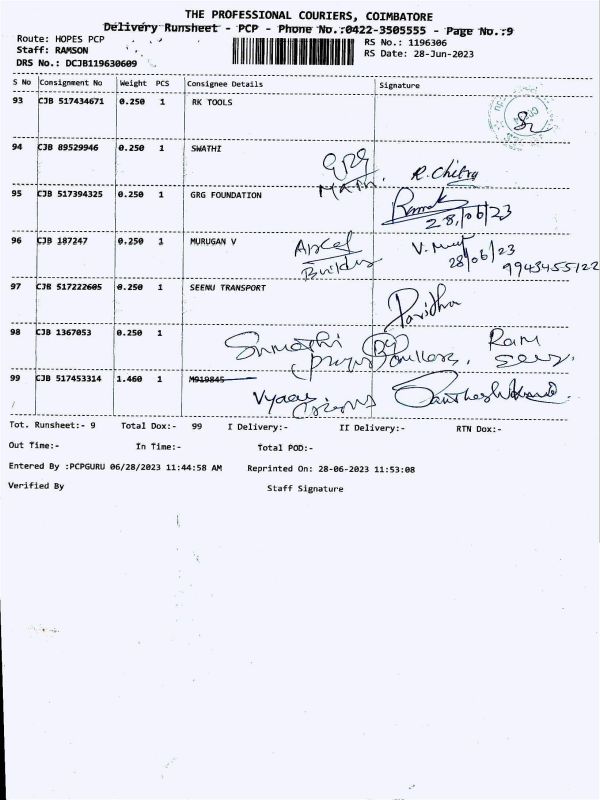 THE PROFESSIONAL COURIERS, COIMBATORE
Delivery Runsheet - PCP - Phone No.:0422-3505555 - Page No.:9
Route: HOPES PCP
RS No.: 1196306
Staff: RAMSON
RS Date: 28-Jun-2023
DRS No.: DCJB119630609
S No Consignment No Weight PCS Consignee Details Signature
93 CJB 517434671 0.250 1 RK TOOLS
94 CJB 89529946 0.250 1 SWATHI
GRG R.Chitra
95 CJB 517394325 0.250 1 GRG FOUNDATION
28/06/23
96 CJB 187247 0.250 1 MURUGAN V
28/06/23
97 CJB 517222605 0.250 1 SEENU TRANSPORT
Pavithra
98 CJB 1367053 0.250 1
Sumathi Ram
99 CJB 517453314 1.460 1 M919845
Tot. Runsheet:- 9 Total Dox:- 99 I Delivery:- II Delivery:- RTN Dox:-
Out Time:- In Time:- Total POD:-
Entered By :PCPGURU 06/28/2023 11:44:58 AM Reprinted On: 28-06-2023 11:53:08
Verified By Staff Signature